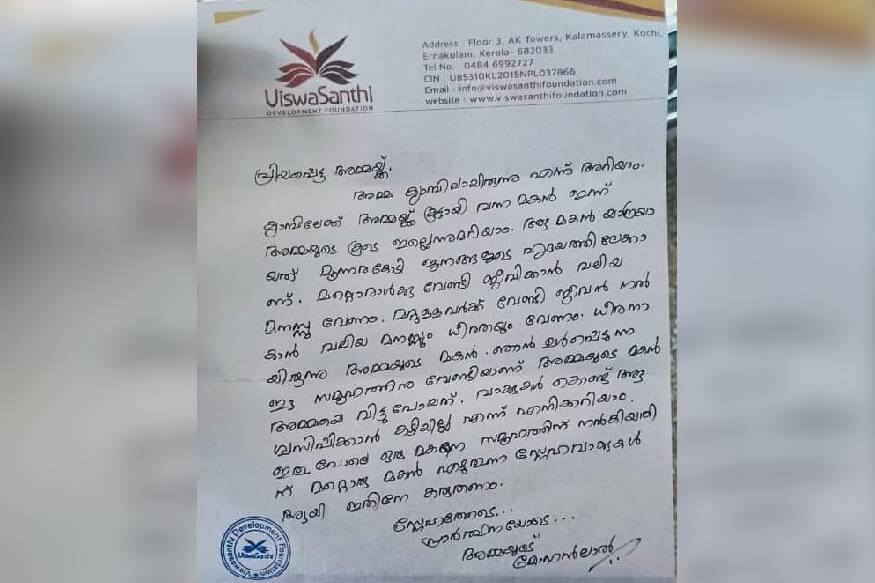 ViswaSanthi
DEVELOPMENT FOUNDATION
Address : Floor 3, AK Towers, Kalamassery, Kochi,
Ernakulam, Kerala- 682033
Tel No. : 0484 6992727
CIN : U85310KL2015NPL037866
Email : info@viswasanthifoundation.com
website : www.viswasanthifoundation.com
പ്രിയപ്പെട്ട അമ്മയ്ക്ക്,
അമ്മ ക്യാമ്പിലായിരുന്നു എന്ന് അറിയാം.
ക്യാമ്പിലേക്ക് അമ്മയ്ക്ക് കൂട്ടായി വന്ന മകൻ ഇന്ന്
അമ്മയുടെ കൂടെ ഇല്ലെന്നുമറിയാം. ആ മകൻ യാത്രയാ
യത് മൂന്നരകോടി ജനങ്ങളുടെ ഹൃദയത്തിലേക്കാ
ണ്. മറ്റൊരാൾക്കു വേണ്ടി ജീവിക്കാൻ വലിയ
മനസ്സു വേണം. മറ്റുള്ളവർക്ക് വേണ്ടി ജീവൻ നൽ
കാൻ വലിയ മനസ്സും ധീരതയും വേണം. ധീരനാ
യിരുന്നു അമ്മയുടെ മകൻ. ഞാൻ ഉൾപ്പെടുന്ന
ഈ സമൂഹത്തിനു വേണ്ടിയാണ് അമ്മയുടെ മകൻ
അമ്മയെ വിട്ടുപോയത്. വാക്കുകൾ കൊണ്ട് ആ
ശ്വസിപ്പിക്കാൻ കഴിയില്ല എന്ന് എനിക്കറിയാം.
ഇതു പോലെ ഒരു മകനെ സമൂഹത്തിന് നൽകിയതി
ന് മറ്റൊരു മകൻ എഴുതുന്ന സ്നേഹവാക്കുകൾ
ആയി ഇതിനേ കരുതണം.
സ്നേഹത്തോടെ...
പ്രാർത്ഥനയോടെ...
അമ്മയുടെ
മോഹൻലാൽ
Viswasanthi Development Foundation
ViswaSanthi